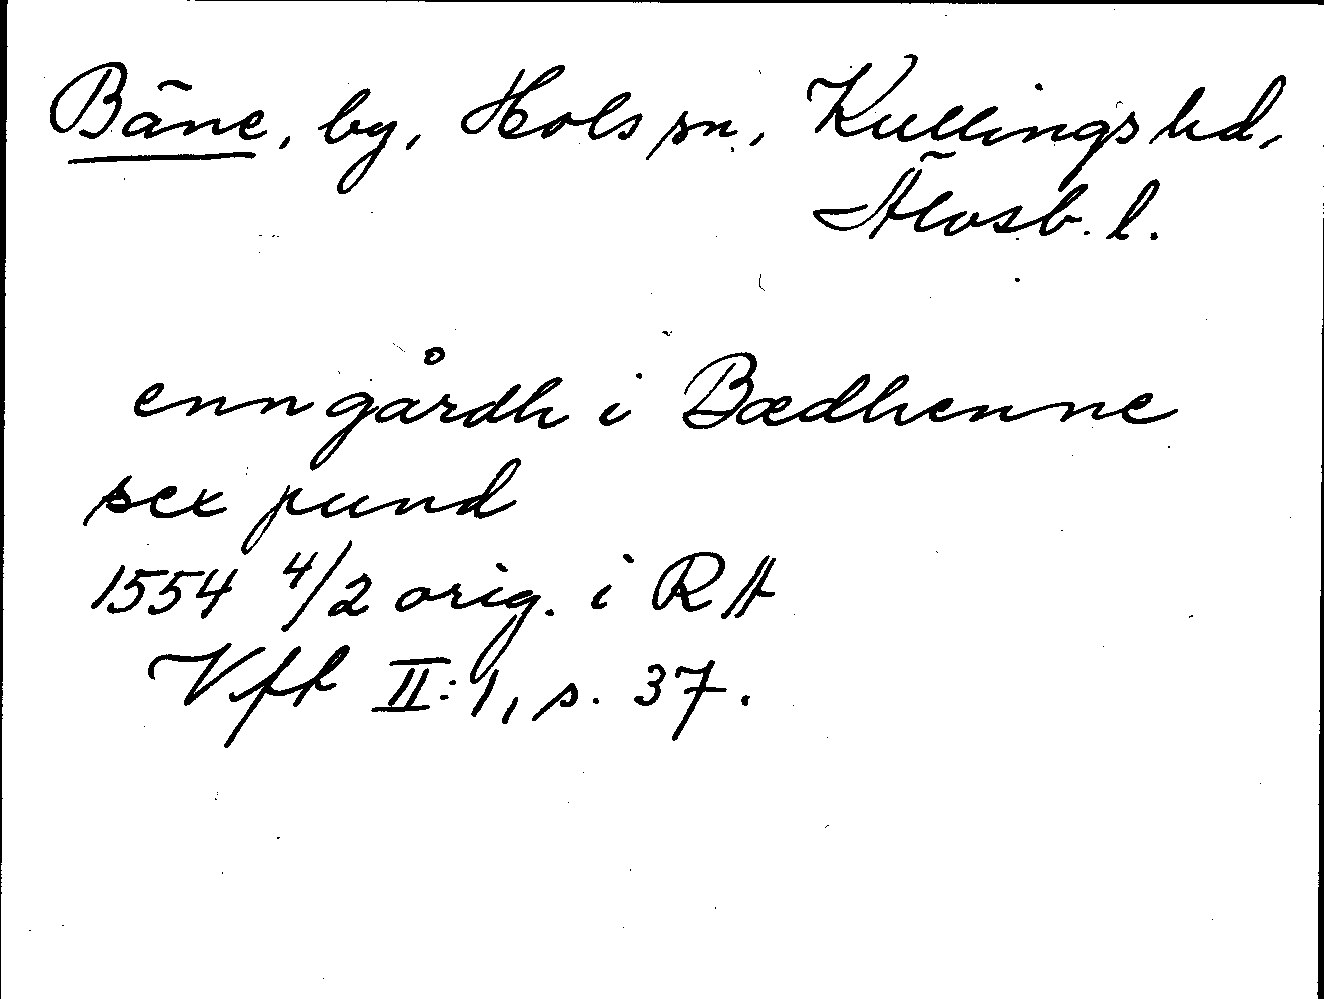 Bäne, by, Hols sn, Kullings hd,
Älvsb. l.
enn gårdh i Bædhenne
sex pund
1554 4/2 orig. i RA
Vff II:1, s. 37.